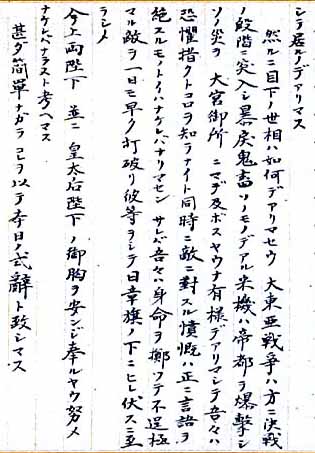 シテ居ルノデアリマス
然ルニ目下ノ世相ハ如何デアリマセウ 大東亜戦争ハ方ニ決戦
ノ段階ニ突入シ暴戻鬼畜ソノモノデアル米機ハ帝都ヲ爆撃シ
ソノ災ヲ 大宮御所 ニマデ及ボスヤウナ有様デアリマシテ吾々ハ
恐懼措クトコロヲ知ラナイト同時ニ敵ニ対スル憤慨ハ正ニ言語ヲ
絶スルモノトイハナケレバナリマセン サレバ吾々ハ身命ヲ擲ツテ不逞極
マル敵ヲ一日モ早ク打破リ彼等ヲシテ日章旗ノ下ニヒレ伏スニ至
ラシメ
今上両陛下 並ニ 皇太后陛下 ノ御胸ヲ安ンジ奉ルヤウ努メ
ナケレバナラヌト考ヘマス
甚ダ簡単ナガラ コレヲ以テ本日ノ式辞ト致シマス